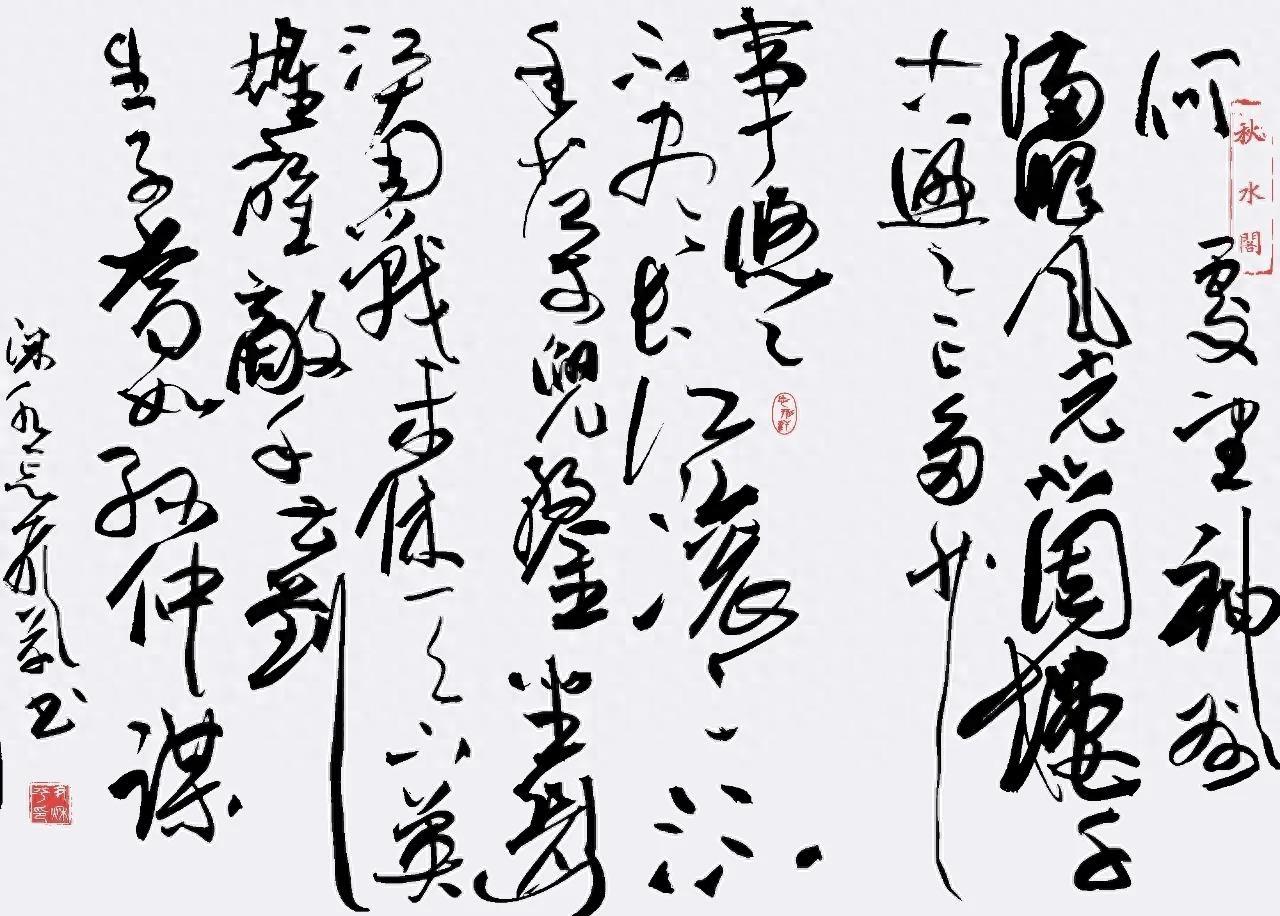 秋水閣
何處望神州
滿眼風光北固樓千
古興亡多少
事悠々
不盡長江滾々流
年少萬兜鍪坐斷
東南戰未休天下英
雄誰敵手曹劉
生子當如孫仲謀
书